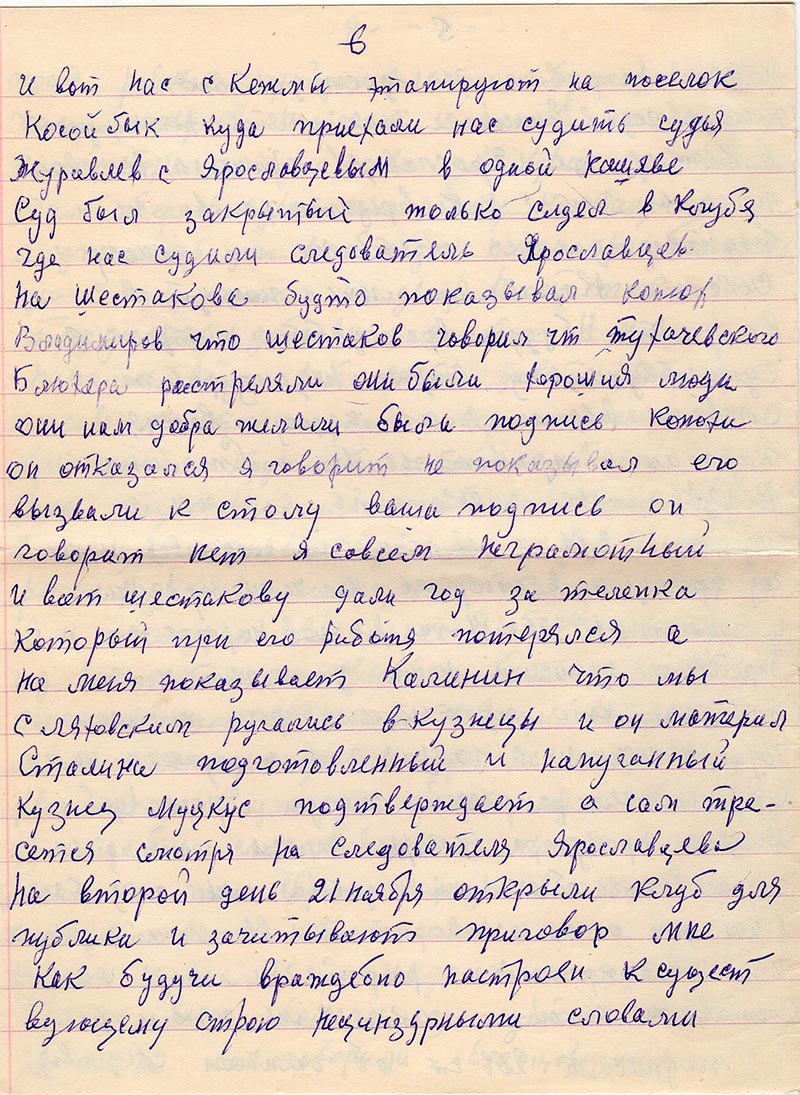 6
И вот нас с Кежмы этапируют на поселок
Косой бык куда приехали нас судить судья
Журавлев с Ярославцевым в одной кошяве
Суд был закрытый только сидел в клубя
где нас судили следователь Ярославцев.
На Шестакова будто показывал конюх
Владимиров что шестаков говорил чт тухачевского
Блюхера расстреляли они были хорошия люди
они нам добра желали была подпись конюхи
он отказался я говорит не показывал его
вызвали к столу ваша подпись он
говорит нет я совсем неграмотный
И вот шестакову дали год за теленка
который при его работя потерялся а
на меня показывает Калинин что мы
с ляховским ругались в-кузнецы и он матерал
Сталина подготовленный и напуганный
кузнец Муцкус подтверждает а сам тре-
сется смотря на следователя Ярославцева
На второй день 21 ноября открыли клуб для
публики и зачитывают приговор мне
Как будучи враждебно настроен к сущест
вующему строю нецинзурными словами